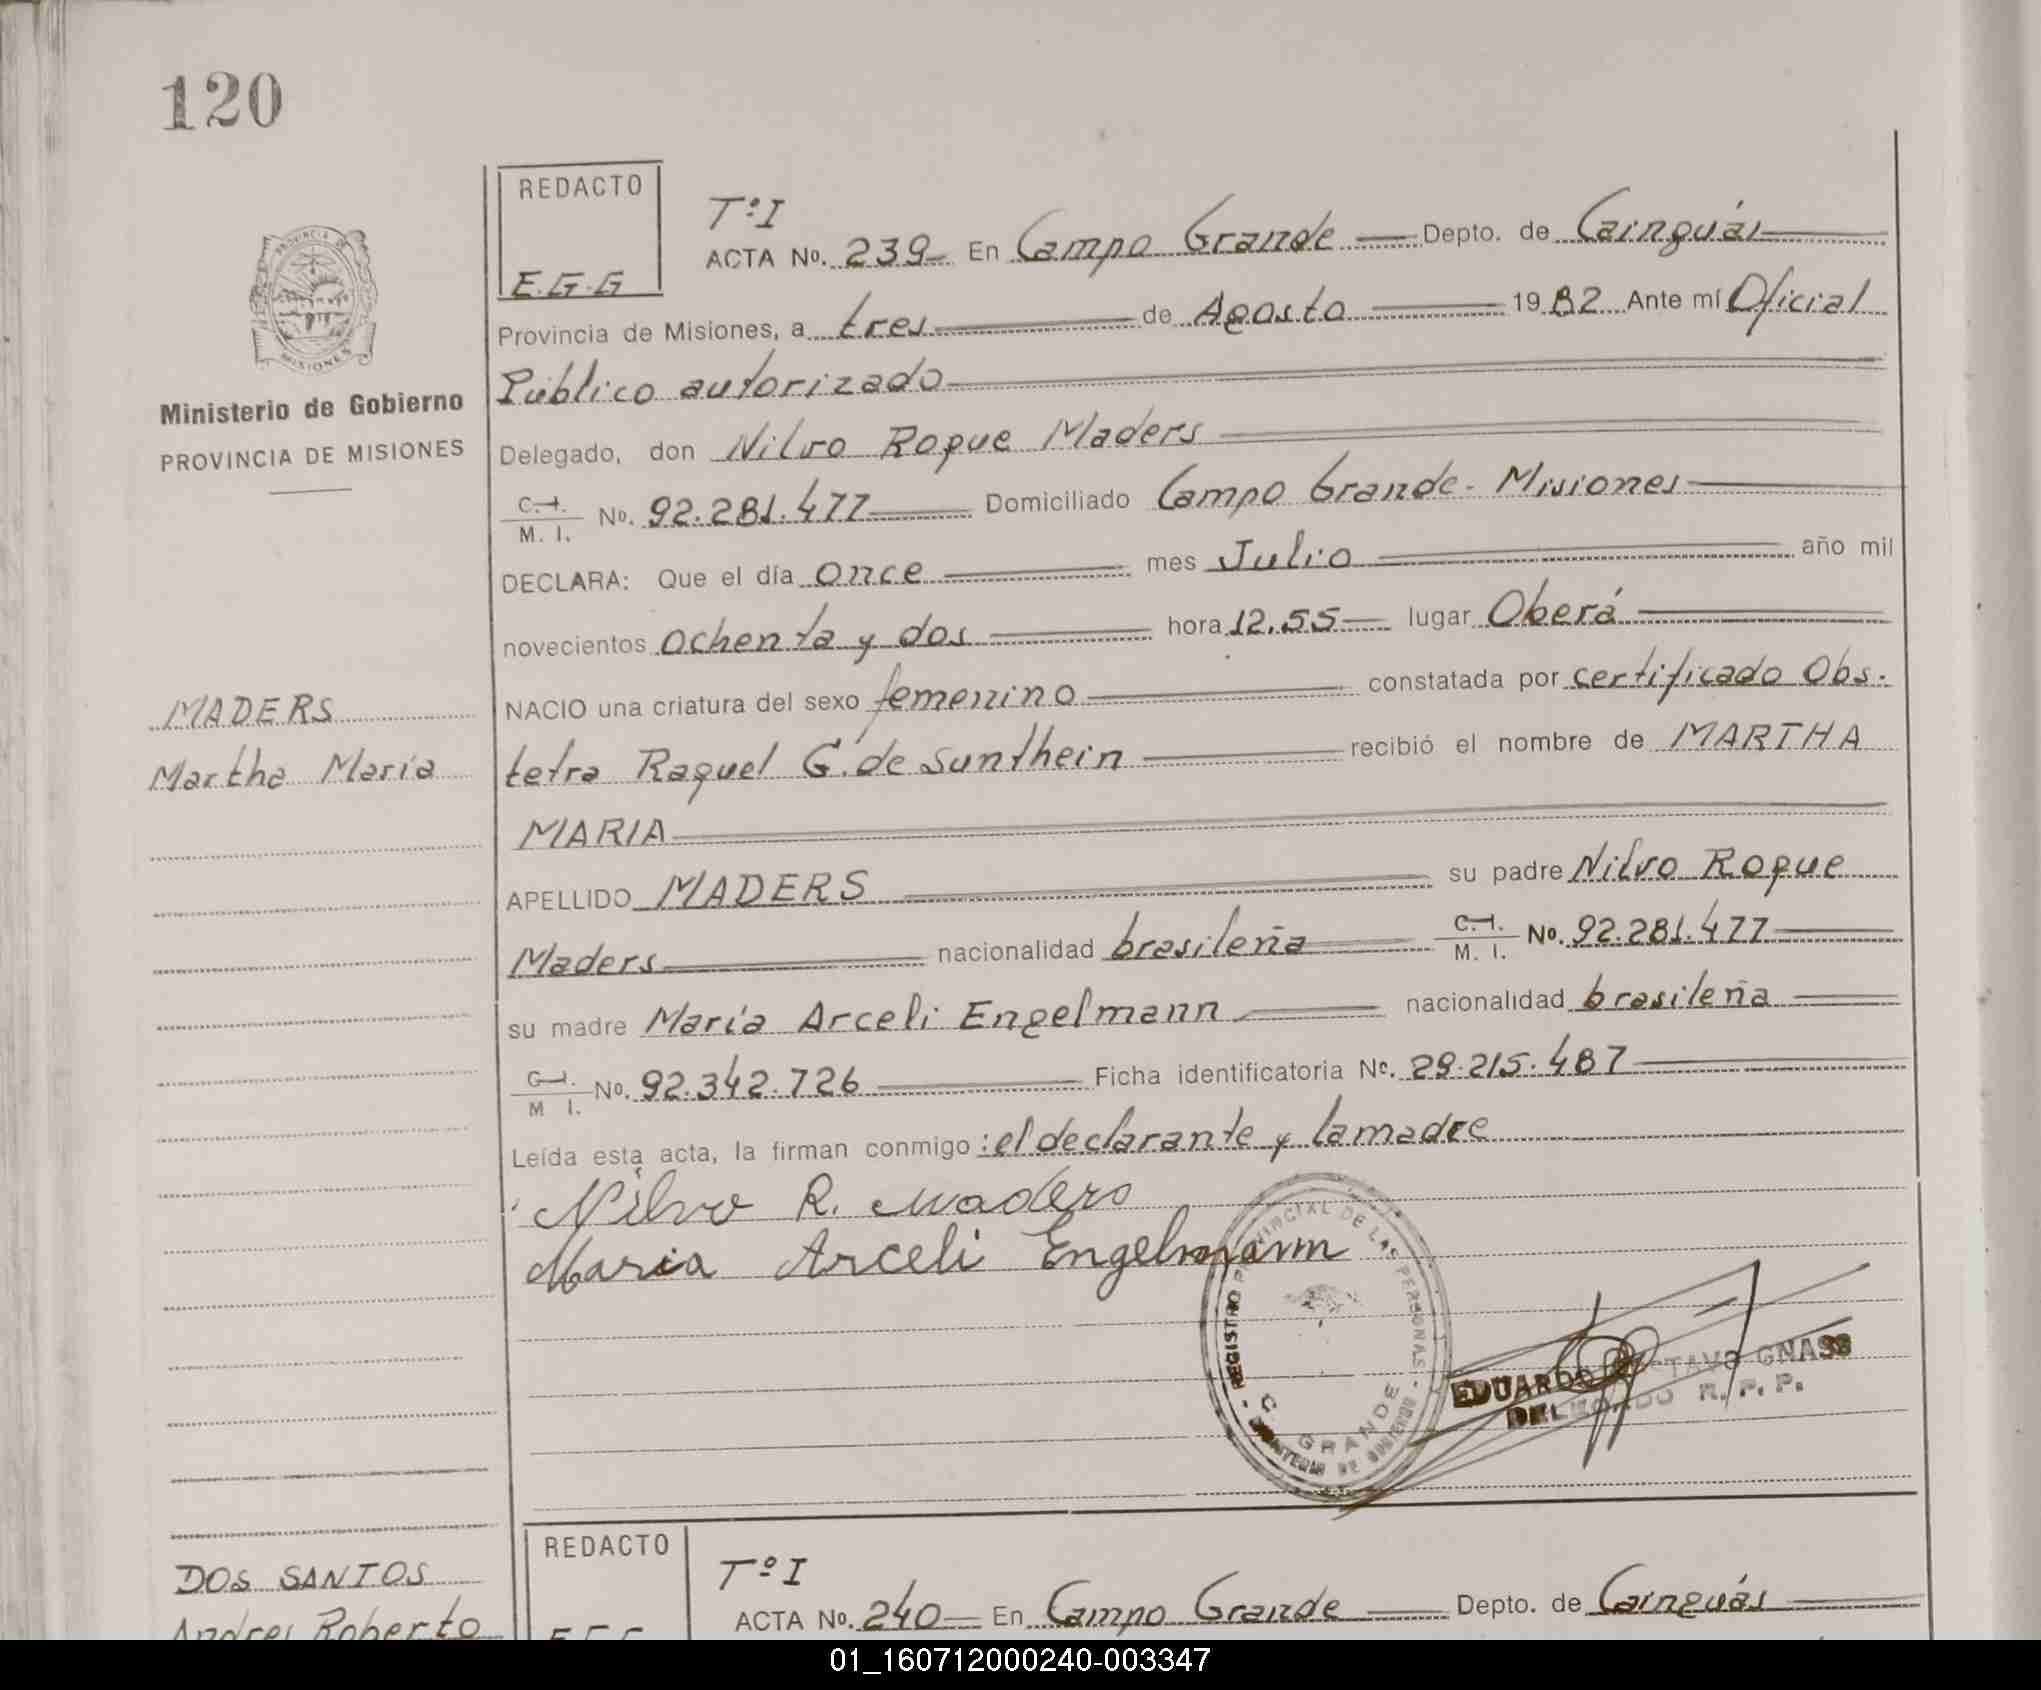 120
REDACTO
E.G.G
PROVINCIA DE
MISIONES
Ministerio de Gobierno
PROVINCIA DE MISIONES
Tº I
ACTA No. 239 En Campo Grande Depto. de Cainguás
Provincia de Misiones, a tres de Agosto 19 82 Ante mí Oficial
Público autorizado
Delegado, don Nilvo Roque Maders
C.I. M. I. No. 92.281.477 Domiciliado Campo Grande - Misiones
DECLARA: Que el día once mes Julio año mil
novecientos ochenta y dos hora 12.55 lugar Oberá
NACIO una criatura del sexo femenino constatada por certificado Obs.
tetra Raquel G. de Sunthein recibió el nombre de MARTHA
MARIA
MADERS
Martha Maria
APELLIDO MADERS su padre Nilvo Roque
Maders nacionalidad brasileña C.I. M. I. No. 92.281.477
su madre Maria Arceli Engelmann nacionalidad brasileña
C.I. M I. No. 92.342.726 Ficha identificatoria No. 29.215.487
Leída esta acta, la firman conmigo: el declarante y la madre
Nilvo R. Maders
Maria Arceli Engelmann
REGISTRO PROVINCIAL DE LAS PERSONAS
C. GRANDE
MINISTERIO DE GOBIERNO
EDUARDO GUSTAVO GNASS
DELEGADO R. P. P.
DOS SANTOS
Andres Roberto
REDACTO
Tº I
ACTA No. 240 En Campo Grande Depto. de Cainguás
01_160712000240-003347